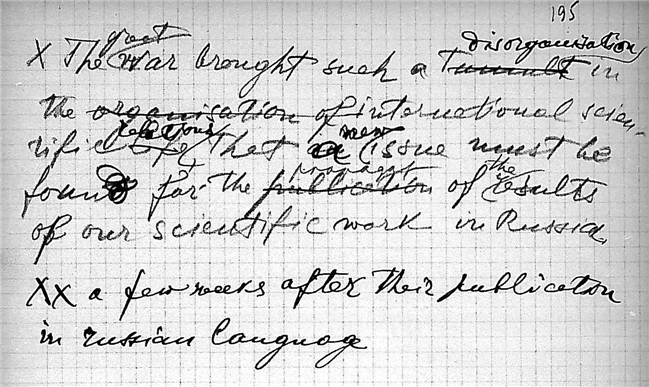 195
X The great War brought such a Tumult disorganisation in
the organisation of international scien-
tific life relations that a new issue must be
found for the publication propagat of the results
of our scientific work in Russia.
XX a few weeks after their publication
in russian languag